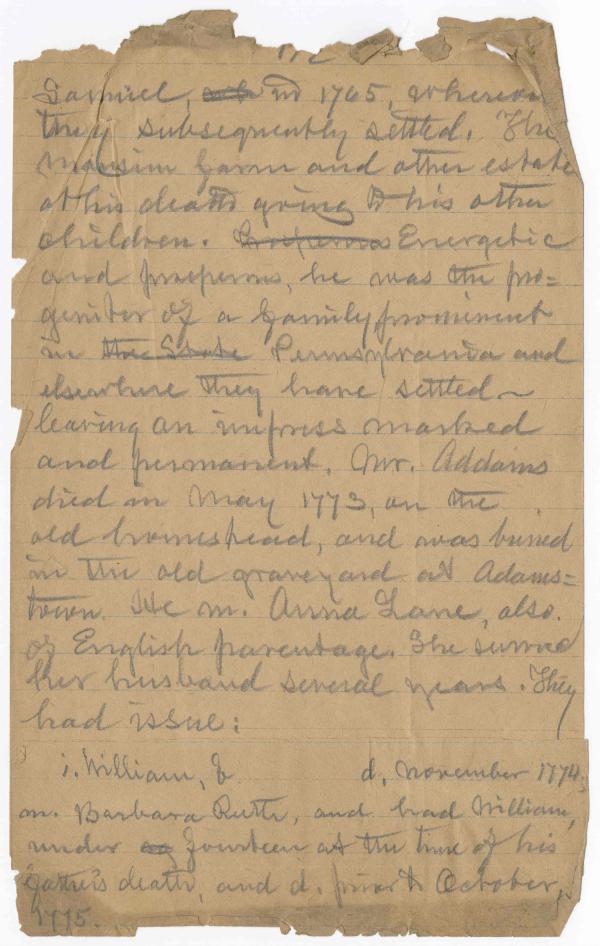 Samuel, in 1765, whereon
they subsequently settled. The
mansion farm and other estate
at his death going to his other
children. Prosperous Energetic
and prosperous, he was the pro=
genitor of a family prominent
in the State Pennsylvania and
elsewhere they have settled~
leaving an impress marked
and permanent. Mr. Addams
died in May 1773, on the
old homestead, and was buried
in the old graveyard at Adams=
town. He m. Anna Lane, also
of English parentage. She survived
her husband several years. They
had issue:
i. William, b. d. November 1774;
m. Barbara Ruth, and had William,
under fourteen at the time of his
father's death, and d. prior to October,
1775.